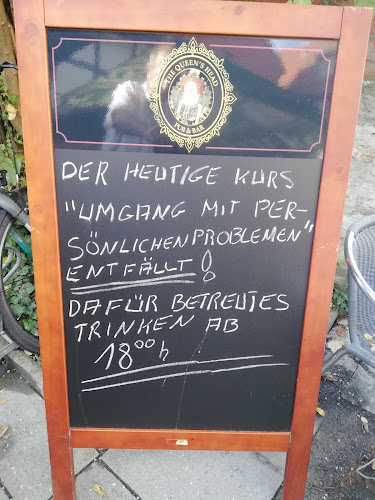 THE QUEEN'S HEAD
PUB & BAR
DER HEUTIGE KURS
"UMGANG MIT PER-
SÖNLICHEN PROBLEMEN"
ENTFÄLLT!
DAFÜR BETREUTES
TRINKEN AB
18⁰⁰h